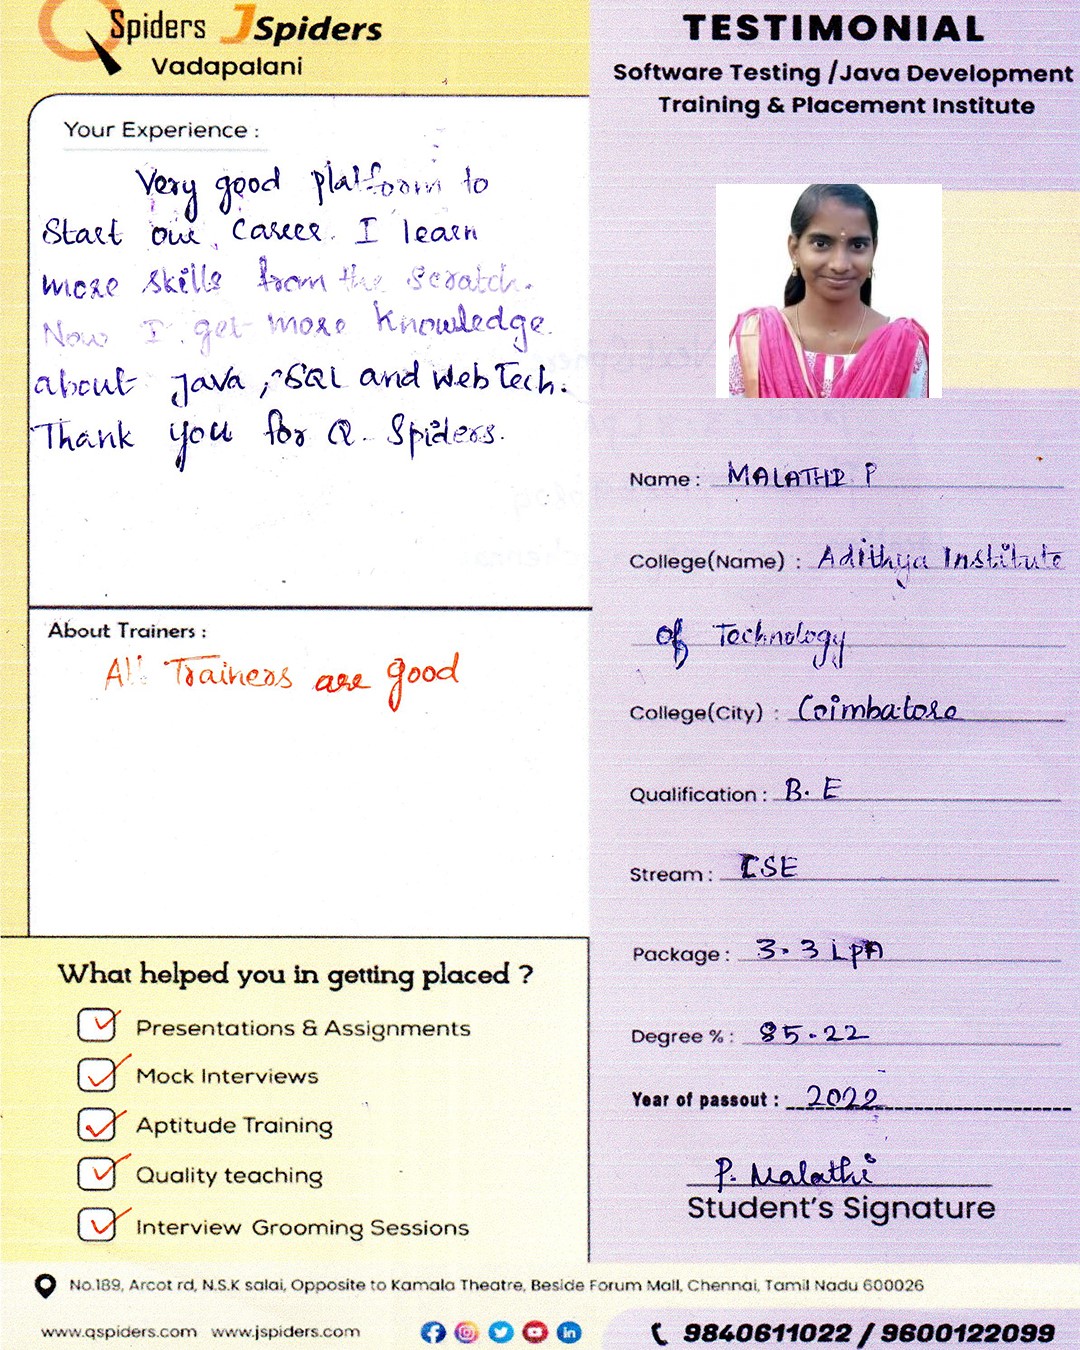 QSpiders JSpiders
Vadapalani
TESTIMONIAL
Software Testing / Java Development
Training & Placement Institute
Your Experience :
Very good platform to
Start our Career. I learn
more skills from the scratch.
Now I get more knowledge
about Java, SQL and Web Tech.
Thank you for Q. Spiders.
About Trainers :
All Trainers are good
What helped you in getting placed ?
Presentations & Assignments
Mock Interviews
Aptitude Training
Quality teaching
Interview Grooming Sessions
Name : MALATHI P
College(Name) : Adithya Institute
of Technology
College(City) : Coimbatore
Qualification : B.E
Stream : CSE
Package : 3.3 LPA
Degree % : 85.22
Year of passout : 2022
P. Malathi
Student's Signature
No.189, Arcot rd, N.S.K salai, Opposite to Kamala Theatre, Beside Forum Mall, Chennai, Tamil Nadu 600026
www.qspiders.com www.jspiders.com
9840611022 / 9600122099